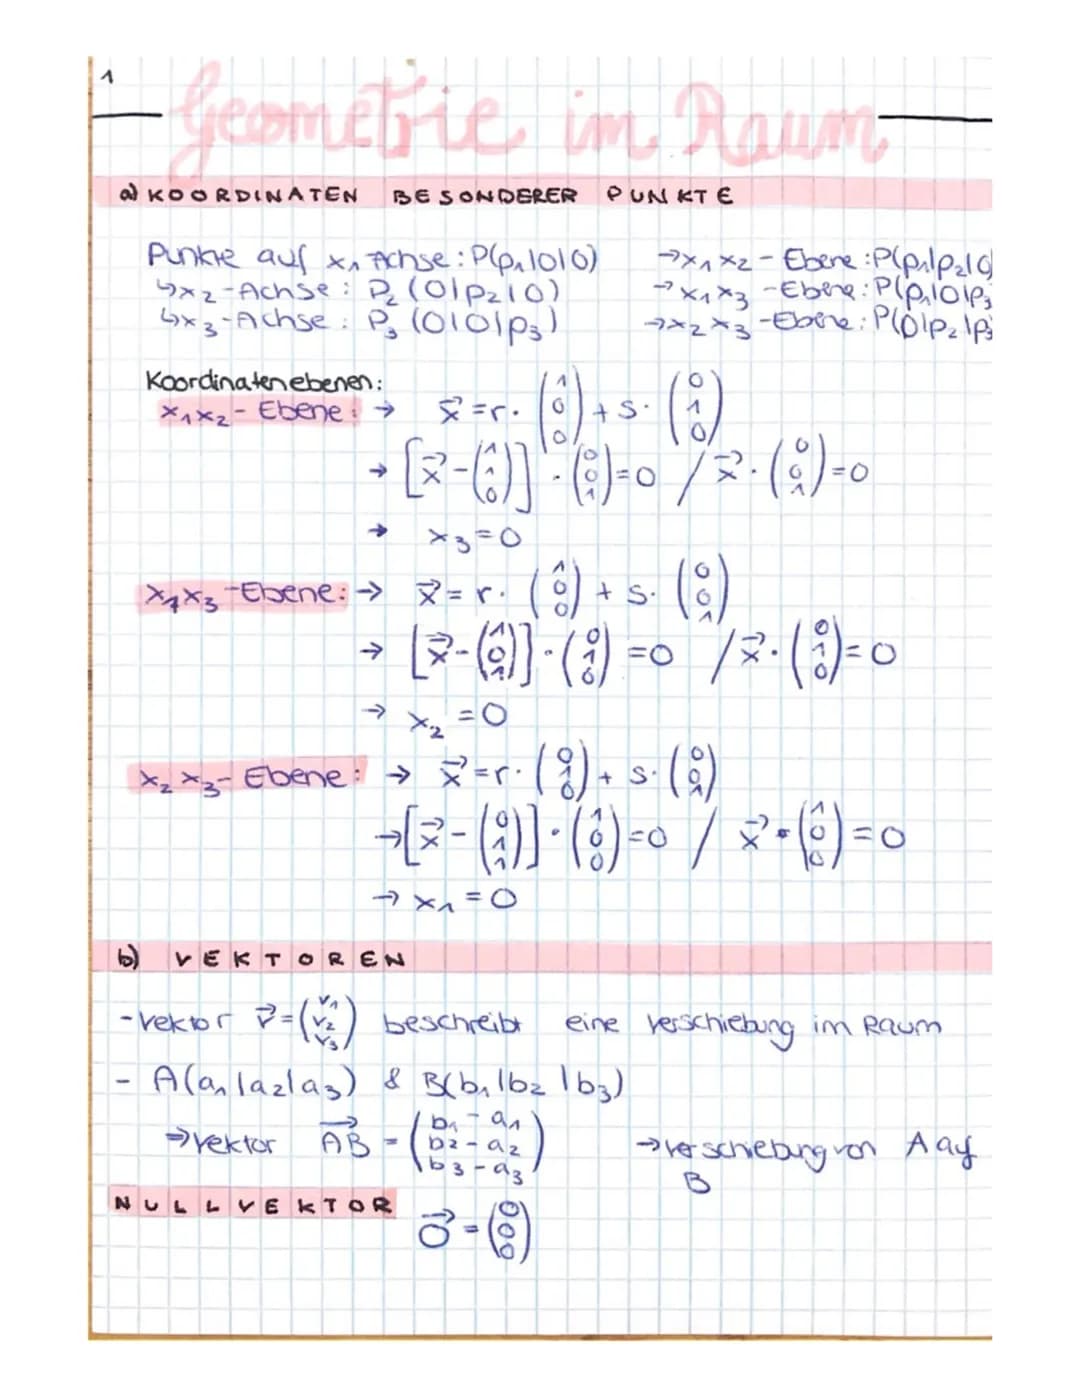 1
Geometrie im Raum
a) KOORDINATEN BESONDERER PUNKTE
Punkte auf x₁ Achse: P(p₁|0|0) →x₁x₂-Ebene: P(p₁|p₂|0
↳x₂-Achse: P₂(0|p₂|0) →x₁x₃-Ebene: P(p₁|0|p₃
↳x₃-Achse: P₃(0|0|p₃) →x₂x₃-Ebene: P(0|p₂|p₃
Koordinatenebenen:
x₁x₂-Ebene: → x⃗ = r·(1 0 0) + s·(0 1 0)
→ [x⃗-(1 1 0)]·(0 0 1)=0 / x⃗·(0 0 1)=0
→ x₃=0
x₁x₃-Ebene: → x⃗ = r·(1 0 0) + s·(0 0 1)
→ [x⃗-(1 0 1)]·(0 1 0)=0 / x⃗·(0 1 0)=0
→ x₂=0
x₂x₃-Ebene: → x⃗=r·(0 1 0) + s·(0 0 1)
→[x⃗-(0 1 1)]·(1 0 0)=0 / x⃗·(1 0 0)=0
→ x₁=0
b) VEKTOREN
-Vektor v⃗=(v₁ v₂ v₃) beschreibt eine Verschiebung im Raum
- A(a₁|a₂|a₃) & B(b₁|b₂|b₃)
→Vektor AB⃗ = (b₁-a₁ b₂-a₂ b₃-a₃) →Verschiebung von A auf
B
NULLVEKTOR o⃗=(0 0 0)